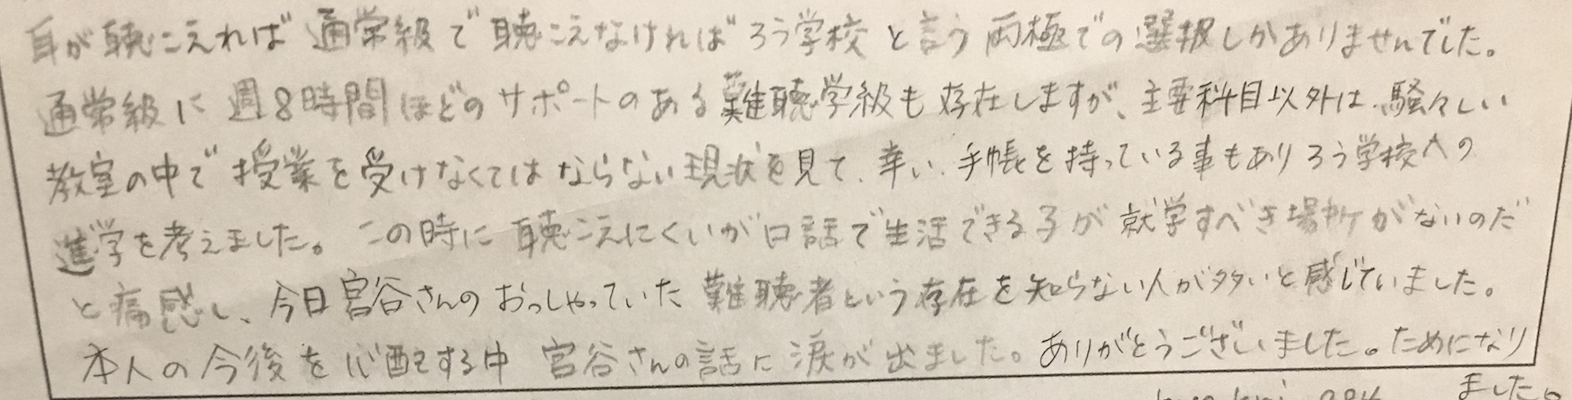 耳が聴こえれば 通常級で 聴こえなければ ろう学校 と言う 両極での 選択しかありませんでした。
通常級に 週8時間ほどの サポートのある 難聴学級も 存在しますが、主要科目以外は 騒々しい
教室の中で 授業を 受けなくてはならない 現状を見て、幸い、手帳を 持っている事もあり ろう学校への
進学を考えました。この時に 聴こえにくいが 口話で生活できる子が 就学すべき場所がないのだ
と痛感し、今日宮谷さんの おっしゃっていた 難聴者という存在を 知らない人が多いと感じていました。
本人の今後を 心配する中 宮谷さんの話に 涙が出ました。ありがとうございました。ためになり
ました。